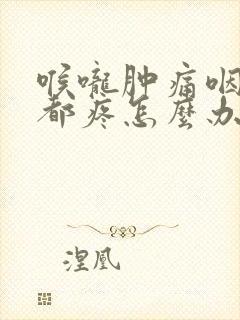 喉嚨肿痛咽
都疼怎麼办
涅凰